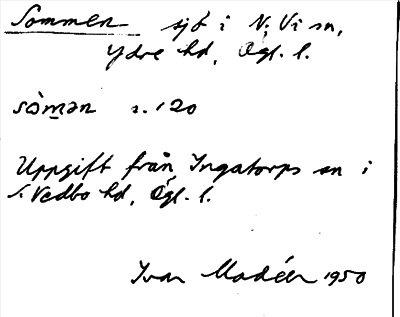 Sommen sjö i N. Vi sn,
Ydre hd, Ögl. l.
sòmən s. 120
Uppgift från Ingatorps sn i
S. Vedbo hd, Ögl. l.
Ivar Modéer 1950